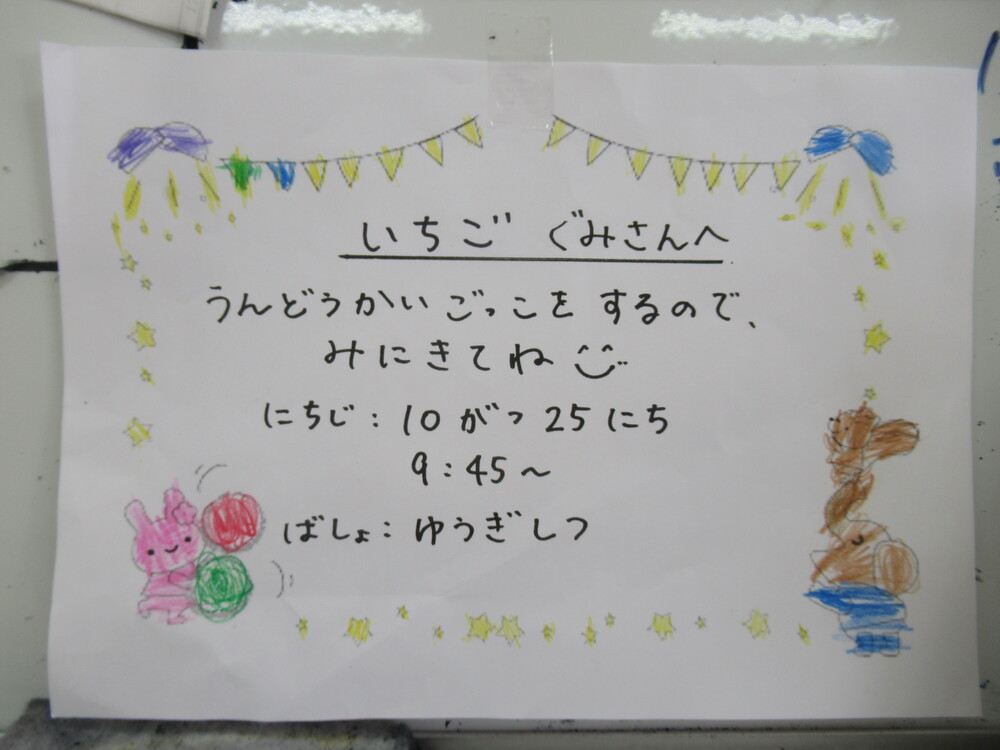 いちご ぐみさんへ
うんどうかいごっこを するので、
みにきてね
にちじ：10がつ 25にち
9：45～
ばしょ：ゆうぎしつ